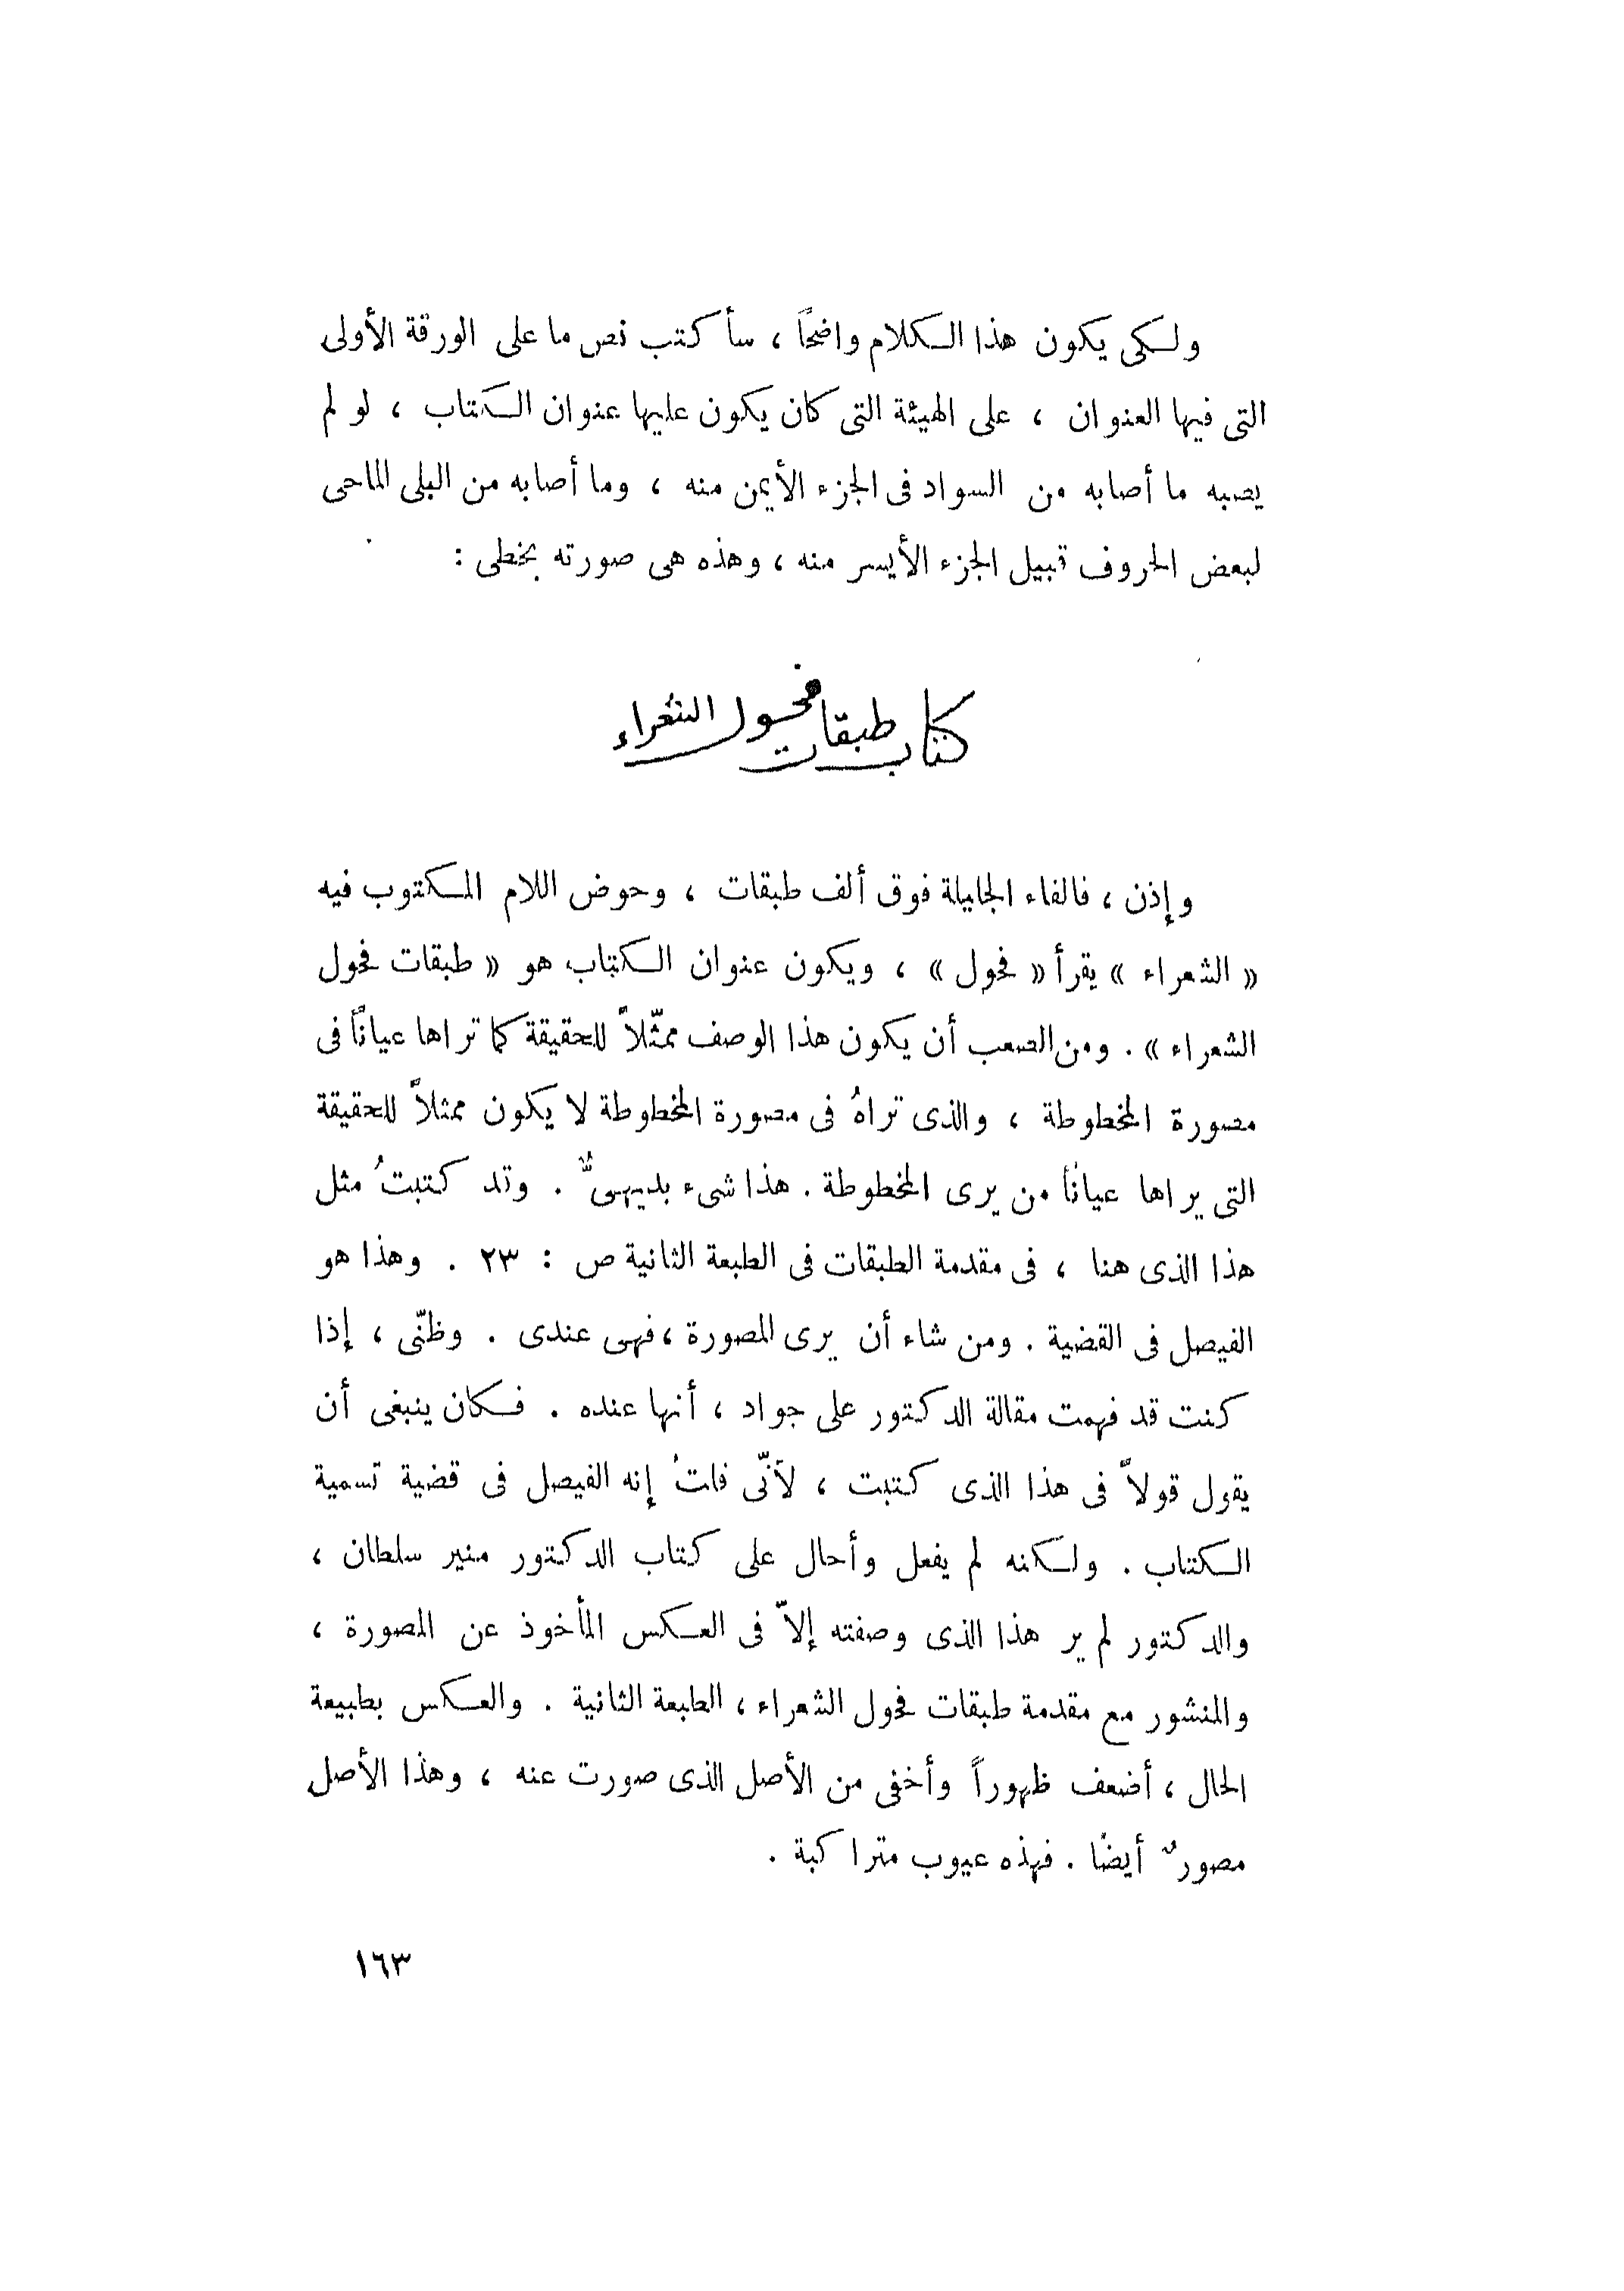 ولكى يكون هذا الكلام واضحًا ، سأكتب نص ما على الورقة الأولى
التى فيها العنوان ، على الهيئة التى كان يكون عليها عنوان الكتاب ، لو لم
يصبه ما أصابه من السواد فى الجزء الأيمن منه ، وما أصابه من البلى الماحى
لبعض الحروف قبيل الجزء الأيسر منه ، وهذه هى صورته بخطى :
كتاب طبقات فحول الشعراء
وإذن ، فالفاء الجليلة فوق ألف طبقات ، وحوض اللام المكتوب فيه
« الشعراء » يقرأ « فحول » ، ويكون عنوان الكتاب هو « طبقات فحول
الشعراء » . ومن الصعب أن يكون هذا الوصف ممثّلاً للحقيقة كما تراها عيانًا فى
مصورة المخطوطة ، والذى تراهُ فى مصورة المخطوطة لا يكون ممثلاً للحقيقة
التى يراها عيانًا من يرى المخطوطة . هذا شىء بديهىٌّ . وقد كتبتُ مثل
هذا الذى هنا ، فى مقدمة الطبقات فى الطبعة الثانية ص : ٢٣ . وهذا هو
الفيصل فى القضية . ومن شاء أن يرى المصورة ، فهى عندى . وظنّى ، إذا
كنت قد فهمت مقالة الدكتور على جواد ، أنها عنده . فكان ينبغى أن
يقول قولاً فى هذا الذى كتبت ، لأنّى قلتُ إنه الفيصل فى قضية تسمية
الكتاب . ولكنه لم يفعل وأحال على كتاب الدكتور منير سلطان ،
والدكتور لم ير هذا الذى وصفته إلاّ فى العكس المأخوذ عن المصورة ،
والمنشور مع مقدمة طبقات فحول الشعراء ، الطبعة الثانية . والعكس بطبيعة
الحال ، أضعف ظهوراً وأخفى من الأصل الذى صورت عنه ، وهذا الأصل
مصورٌ أيضًا . فهذه عيوب متراكبة .
١٦٣